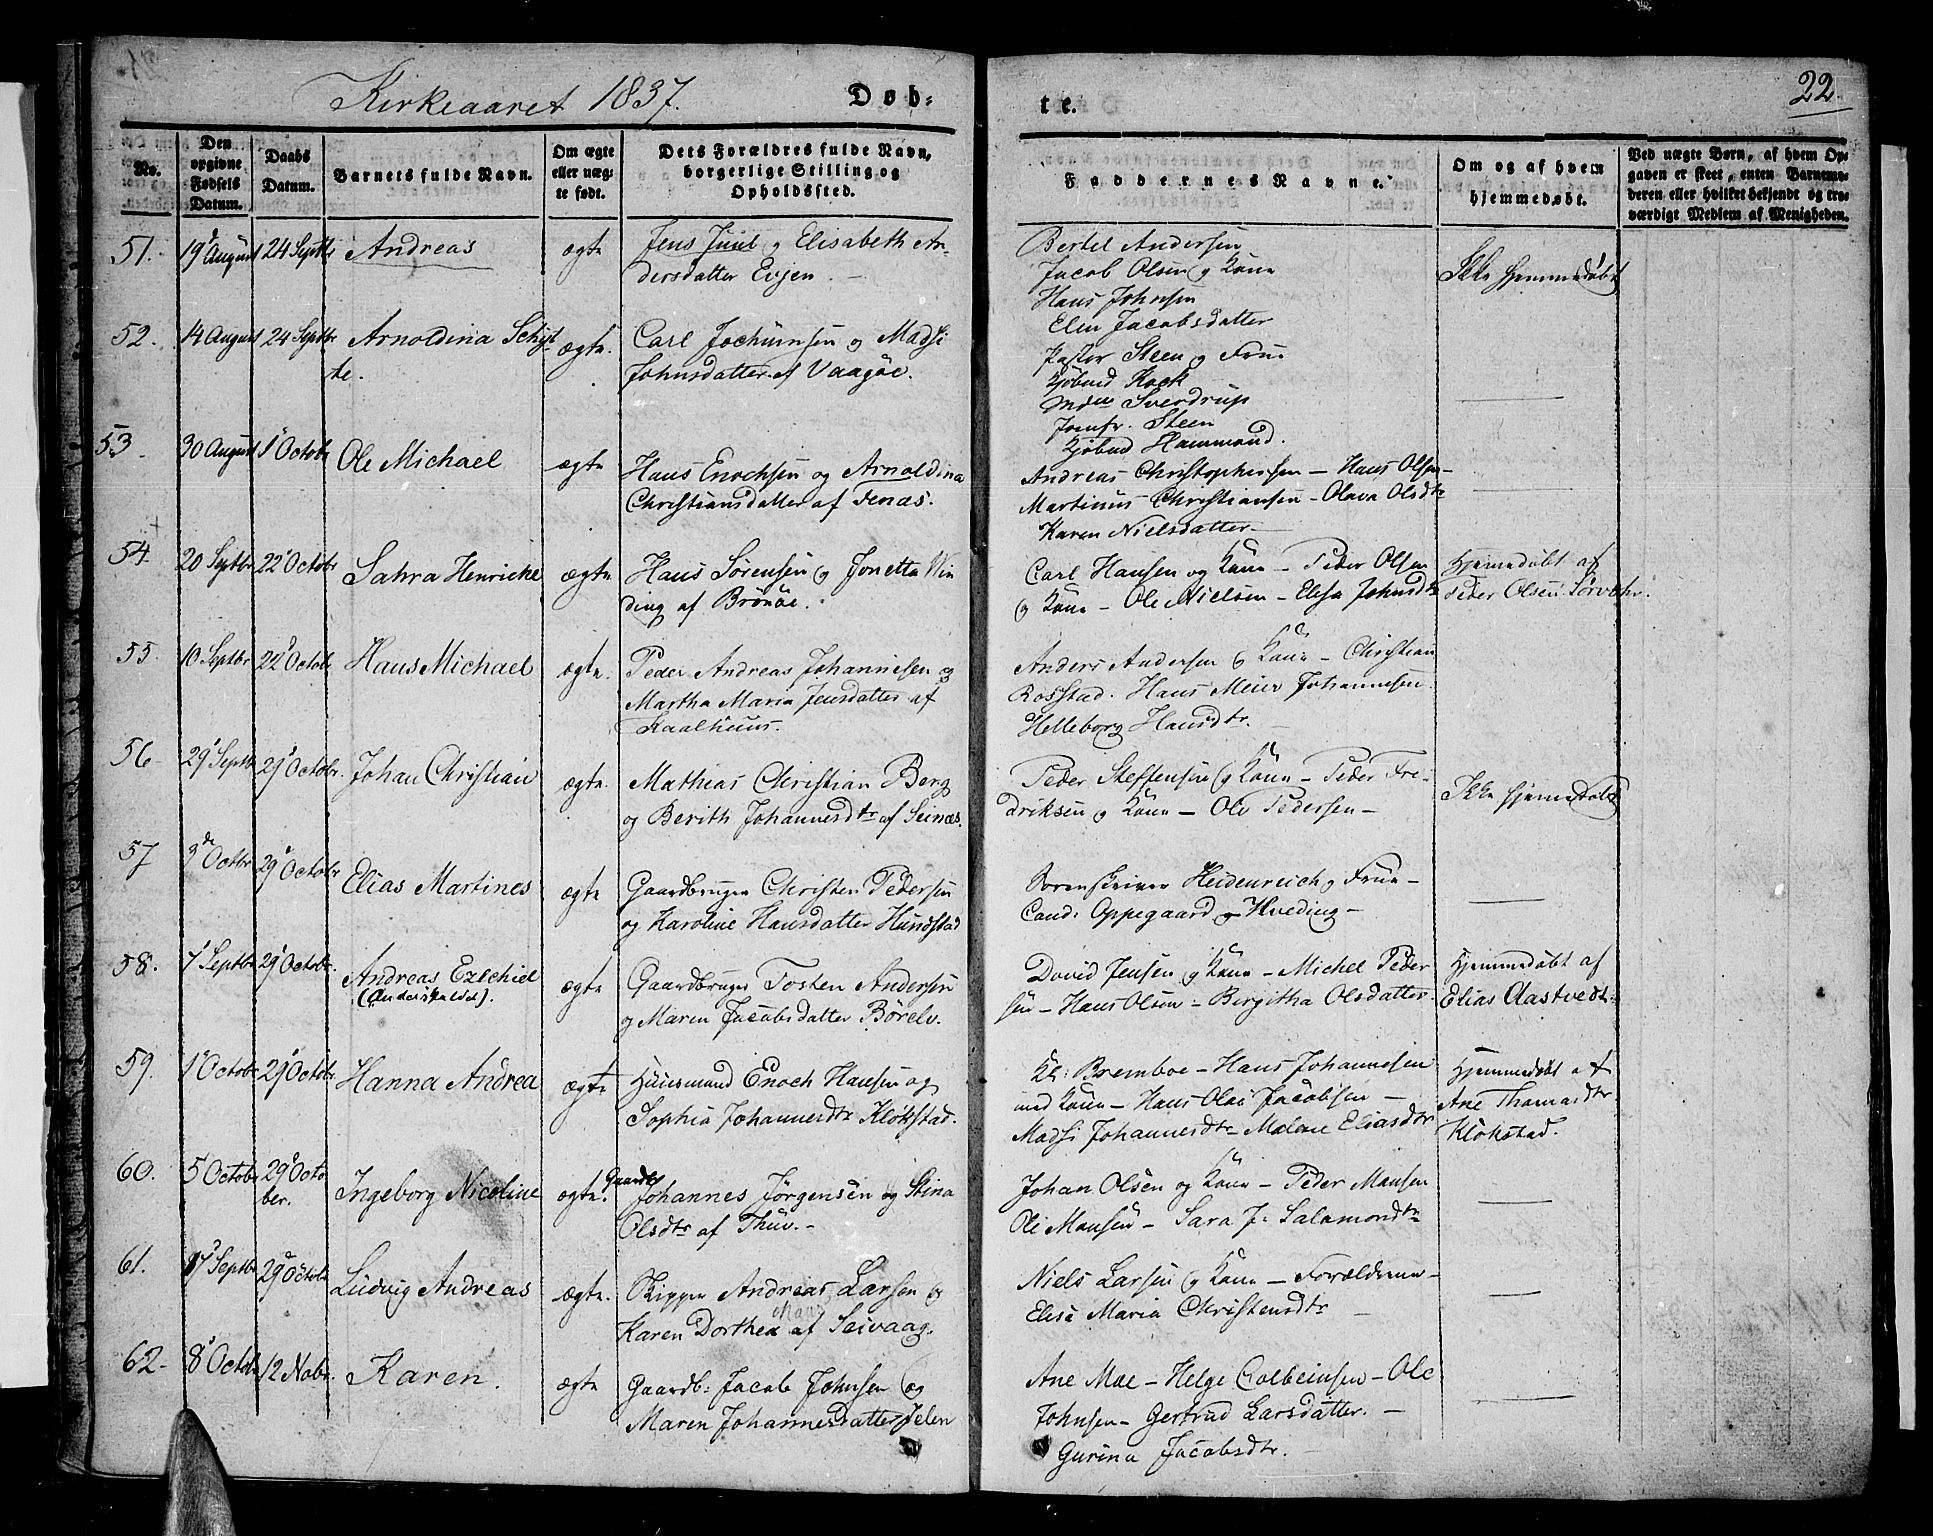 Kirkeaaret 1837.
Døb-
te.
22.
No.
Den opgivne Fødsels Datum.
Daabs Datum.
Barnets fulde Navn.
Om ægte eller uægte født.
Dets Forældres fulde Navn, borgerlige Stilling og Opholdssted.
Faddernes Navne.
Om og af hvem hjemmedøbt.
Ved uægte Børn, af hvem Opgaven er skeet, enten Barnemoderen eller hvilket bekjendt og troværdigt Medlem af Menigheden.
51. 19 August 24 Septbr Andreas ægte Jens Juul og Elisabeth An-
dersdatter Evjen.
Bertel Andersen
Jacob Olsen og Kone
Hans Johnsen
Elen Jacobsdatter
Ikke hjemmedøbt
52. 14 August 24 Septbr Arnoldina Schyt-
te. ægte. Carl Jochumsen og Madsi
Johnsdatter af Vaagøe.
Pastor Steen og Frue
Kjøbmd Kock
Mdme Sverdrup
Jomfr. Steen
Kjøbmd Hammond.
53. 30 August 1 Octobr Ole Michael ægte Hans Enochsen og Arnoldina
Christiansdatter af Fenæs.
Andreas Christophersen – Hans Olsen –
Martinus Christiansen – Olava Olsdtr
Karen Nielsdatter –
54. 20 Septbr 22 Octobr Sahra Henricke ægte Hans Sørensen og Jonetta Win
ding af Brønøe.
Carl Hansen og Kone – Peder Olsen
og Kone – Ole Nielsen – Elisa Johnsdtr
Hjemmedøbt af
Peder Olsen
55. 10 Septbr 22 Octobr Hans Michael ægte. Peder Andreas Johannesen og
Martha Maria Jensdatter af
Anders Andersen og Kone – Christian
Rosstad. Hans Meier Johannesen.
Helleborg Hansdtr.
56. 29 Septbr 29 Octobr. Johan Christian ægte. Mathias Christian Berg
og Berith Johannesdtr af Seinæs.
Peder Steffensen og Kone – Peder Fre-
driksen og Kone – Ole Pedersen –
Ikke hjemmedøbt
57. 3 Octbr 29 Octobr Elias Martines ægte Gaardbruger Christen Pedersen
og Karoline Hansdatter Hundstad
Sorenskriver Heidenreich og Frue –
Cand: Oppegaard og Hveding –
58. 7 Septbr 29 Octobr. Andreas Ezechiel
ægte Gaardbruger Tosten Andersen
og Maren Jacobsdatter Børelv.
David Jensen og Kone – Michel Peder
sen – Hans Olsen – Birgitha Olsdatter.
Hjemmedøbt af
Elias Aastvedt.
59. 1 Octobr 29 Octobr Hanna Andrea ægte Huusmand Enoch Hansen og
Sophia Johannesdtr Kløkstad.
Kl: Bremboe – Hans Johannesen
med Kone – Hans Olai Jacobsen –
Madsi Johannesdtr – Malene Eliasdtr
Hjemmedøbt af
Ane Thomasdtr
Kløkstad.
60. 5 Octobr 29 Octo
ber. Ingeborg Nicoline ægte. Gaardb Johannes Jørgensen og Stina
Olsdtr af Thuv. –
Johan Olsen og Kone – Peder Monsen
Ole Monsen – Sara J: Salamondtr
61. 17 Septbr 29 Octobr Ludvig Andreas ægte. Skipper Andreas Larsen og
Karen Dorthea af Seivaag.
Niels Larsen og Kone – Forældrene –
Elise Maria Christensdtr
62. 8 Octobr 12 Nobr. Karen. ægte Gaardb: Jacob Johnsen og
Maren Johannesdatter Ielen
Ane Moe – Helge Colbeinsen – Ole
Johnsen – Gertrud Larsdatter. –
Gurina Jacobsdtr.